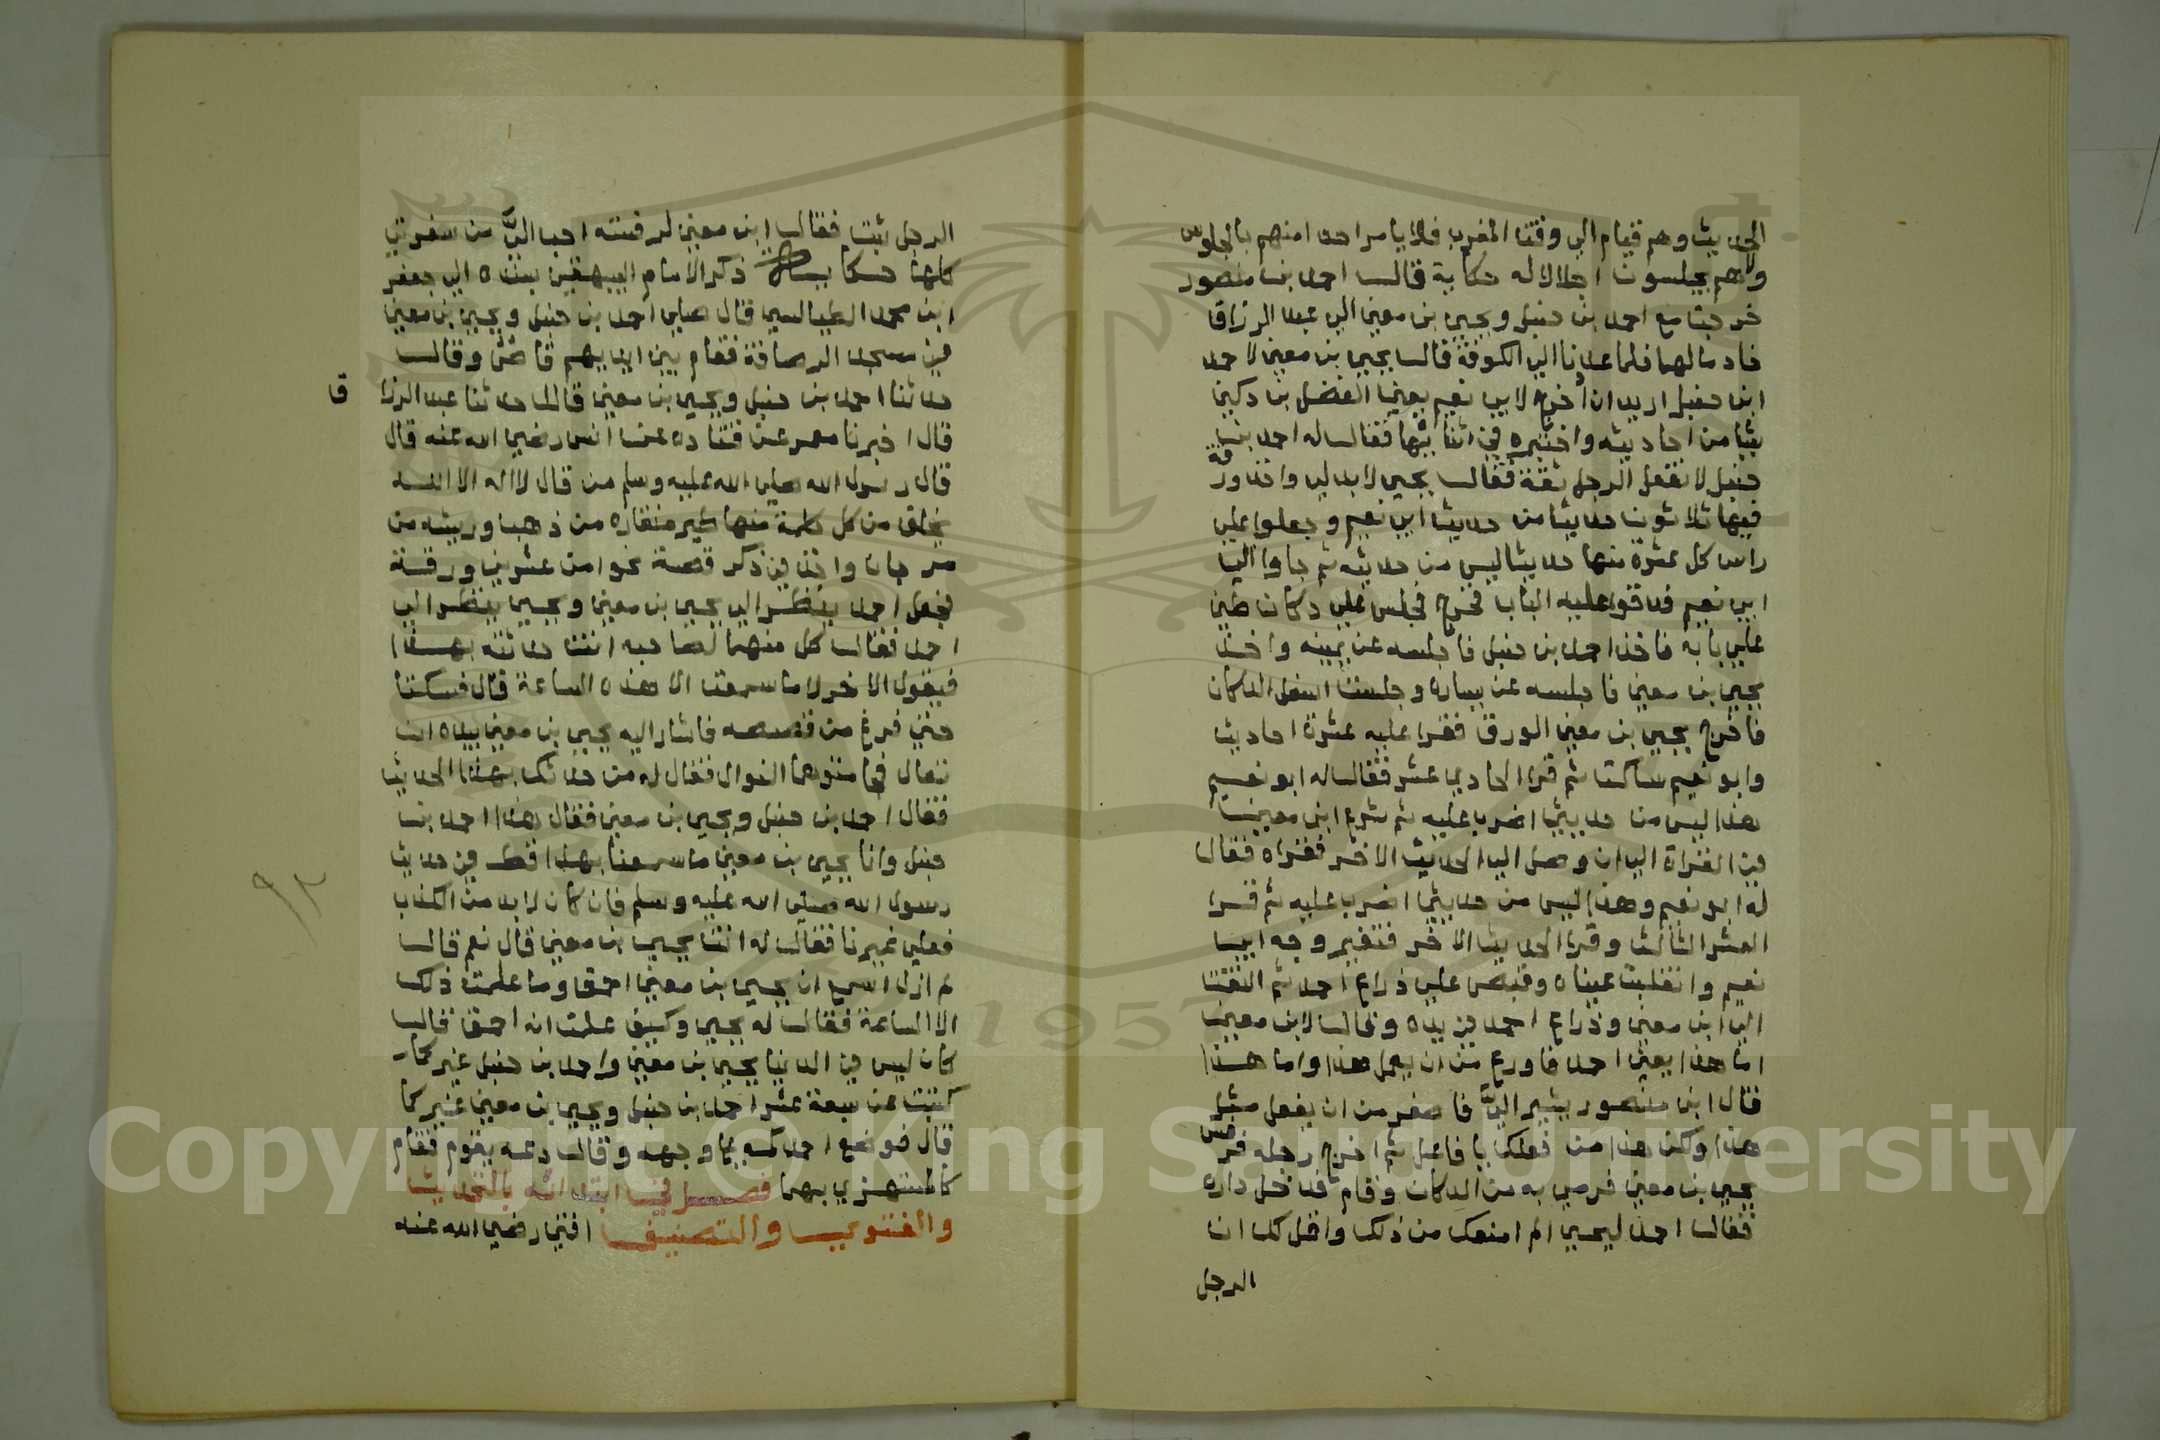 الحديث وهم قيام الي وقت المغرب فلا يامر احدا منهم بالجلوس
ولا هم يجلسون اجلالا له حكاية قال احمد بن منصور
خرجت مع احمد بن حنبل ويحيي بن معين الي عبد الرزاق
خادما لهما فلما عدنا الي الكوفة قال يحيي بن معين لاحمد
ابن حنبل اريد ان اخرج لابي نعيم يعني الفضل بن دكين
شيا من احاديثه واختبره في اثنائها فقال له احمد بن
حنبل لا تفعل الرجل ثقة فقال يحيي لا بد لي واخذ ورقة
فيها ثلاثون حديثا من حديث ابي نعيم وجعلوا علي
راس كل عشرة منها حديثا ليس من حديثه ثم جاوا الي
ابي نعيم فدقوا عليه الباب فخرج فجلس علي دكان طين
علي بابه فاخذ احمد بن حنبل فاجلسه عن يمينه واخذ
يحيي بن معين فاجلسه عن يساره وجلست اسفل الدكان
فاخرج يحيي بن معين الورق فقرا عليه عشرة احاديث
وابو نعيم ساكت ثم قرا الحادي عشر فقال له ابو نعيم
هذا ليس من حديثي اضرب عليه ثم شرع ابن معين
في القراة الي ان وصل الي الحديث الاخر فقراه فقال
له ابو نعيم وهذا ليس من حديثي اضرب عليه ثم قرا
العشر الثالث وقرا الحديث الاخر فتغير وجه ابي
نعيم وانقلبت عيناه وقبض علي ذراع احمد ثم التفت
الي ابن معين وذراع احمد في يده وقال لابن معين
اما هذا يعني احمد فاورع من ان يعمل هذا واما هذا
قال ابن منصور يشير الي فاصغر من ان يفعل مثل
هذا ولكن هذا من فعلك يا فاعل ثم اخرج رجله فرفس
يحيي بن معين فرمي به من الدكان وقام فدخل داره
فقال احمد ليحيي الم امنعك من ذلك واقل لك ان
الرجل
الرجل ثبت فقال ابن معين لرفسته احب الي من سفرتي
كلها حكاية ذكر الامام البيهقي بسنده الي جعفر
ابن محمد الطيالسي قال صلي احمد بن حنبل ويحيي بن معين
في مسجد الرصافة فقام بين ايديهم قاص وقال
حدثنا احمد بن حنبل ويحيي بن معين قالا حدثنا عبد الرزا ق
قال اخبرنا معمر عن قتاده عن انس رضي الله عنه قال
قال رسول الله صلي الله عليه وسلم من قال لا اله الا الله
يخلق من كل كلمة منها طير منقاره من ذهب وريشه من
مرجان واخذ في ذكر قصة نحوا من عشرين ورقة
فجعل احمد ينظر الي يحيي بن معين ويحيي ينظر الي
احمد فقال كل منهما لصاحبه انت حدثته بهذا
فيقول الاخر لا ما سمعت الا هذه الساعة قال فسكتا
حتي فرغ من قصصه فاشار اليه يحيي بن معين بيده ان
تعال فجا متوهما النوال فقال له من حدثك بهذا الحديث
فقال احمد بن حنبل ويحيي بن معين فقال هذا احمد بن
حنبل وانا يحيي بن معين ما سمعنا بهذا قط في حديث
رسول الله صلي الله عليه وسلم فان كان لا بد من الكذب
فعلي غيرنا فقال له انت يحيي بن معين قال نعم قال
لم ازل اسمع ان يحيي بن معين احمق وما علمت ذلك
الا الساعة فقال له يحيي وكيف علمت اني احمق قال
كان ليس في الدنيا يحيي بن معين واحمد بن حنبل غيركما
كتبت عن سبعة عشر احمد بن حنبل ويحيي بن معين غيركما
قال فوضع احمد كمه علي وجهه وقال دعه يقوم فقام
كالمستهزي بهما فصل في ابتدائه بالتحديث
والفتوي والتصنيف افتي رضي الله عنه
٩٢
Copyright © King Saud University
1957